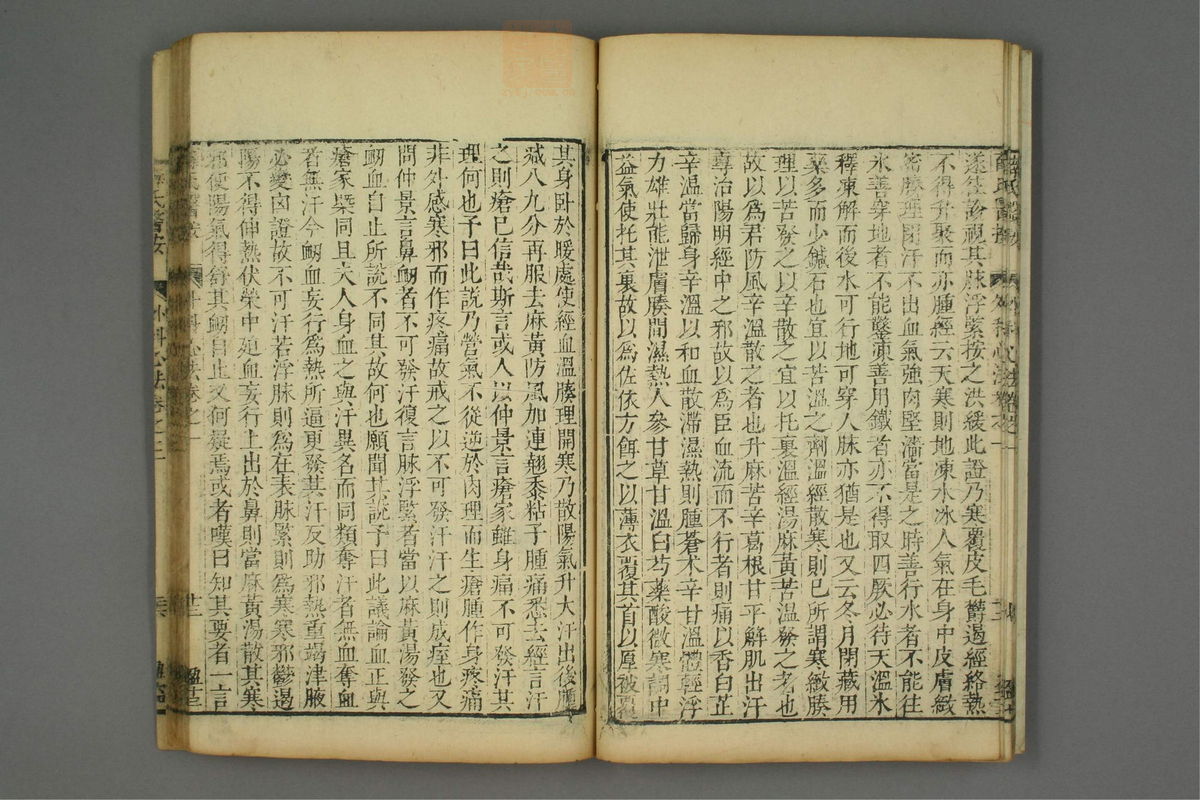 遂往診視其脉浮緊按之洪緩此證乃寒覆皮毛鬱遏經絡熱
不得升聚而赤腫經云天寒則地凍水冰人氣在身中皮膚緻
密腠理閉汗不出血氣強肉堅濇當是之時善行水者不能往
氷善穿地者不能鑿凍善用鐵者亦不得取四厥必待天溫氷
釋凍解而後水可行地可穿人脉亦猶是也又云冬月閉藏用
藥多而少鍼石也宜以苦溫之劑溫經散寒則已所謂寒緻腠
理以苦發之以辛散之宜以托裏溫經湯麻黃苦溫發之者也
故以爲君防風辛溫散之者也升麻苦辛葛根甘平解肌出汗
專治陽明經中之邪故以爲臣血流而不行者則痛以香白芷
辛溫當歸身辛溫以和血散滯濕熱則腫蒼朮辛甘溫體輕浮
力雄壯能泄膚腠間濕熱人參甘草甘溫白芍藥酸微寒調中
益氣使托其裏故以爲佐依方餌之以薄衣覆其首以厚被覆
其身卧於暖處使經血溫腠理開寒乃散陽氣升大汗出後腫
减八九分再服去麻黃防風加連翹黍粘子腫痛悉去經言汗
之則瘡已信哉斯言或人以仲景言瘡家雖身痛不可發汗其
理何也予曰此說乃營氣不從逆於肉理而生瘡腫作身疼痛
非外感寒邪而作疼痛故戒之以不可發汗汗之則成痓也又
問仲景言鼻衂者不可發汗復言脉浮緊者當以麻黃湯發之
衂血自止所說不同其故何也願聞其說予曰此議論血正與
瘡家槩同且夫人身血之與汗異名而同類奪汗者無血奪血
者無汗今衂血妄行爲熱所逼更發其汗反助邪熱重竭津腋
必變凶證故不可汗若浮脉則爲在表脉緊則爲寒寒邪鬱遏
陽不得伸熱伏榮中迫血妄行上出於鼻則當麻黃湯散其寒
邪使陽氣得舒其衂自止又何疑焉或者嘆曰知其要者一言